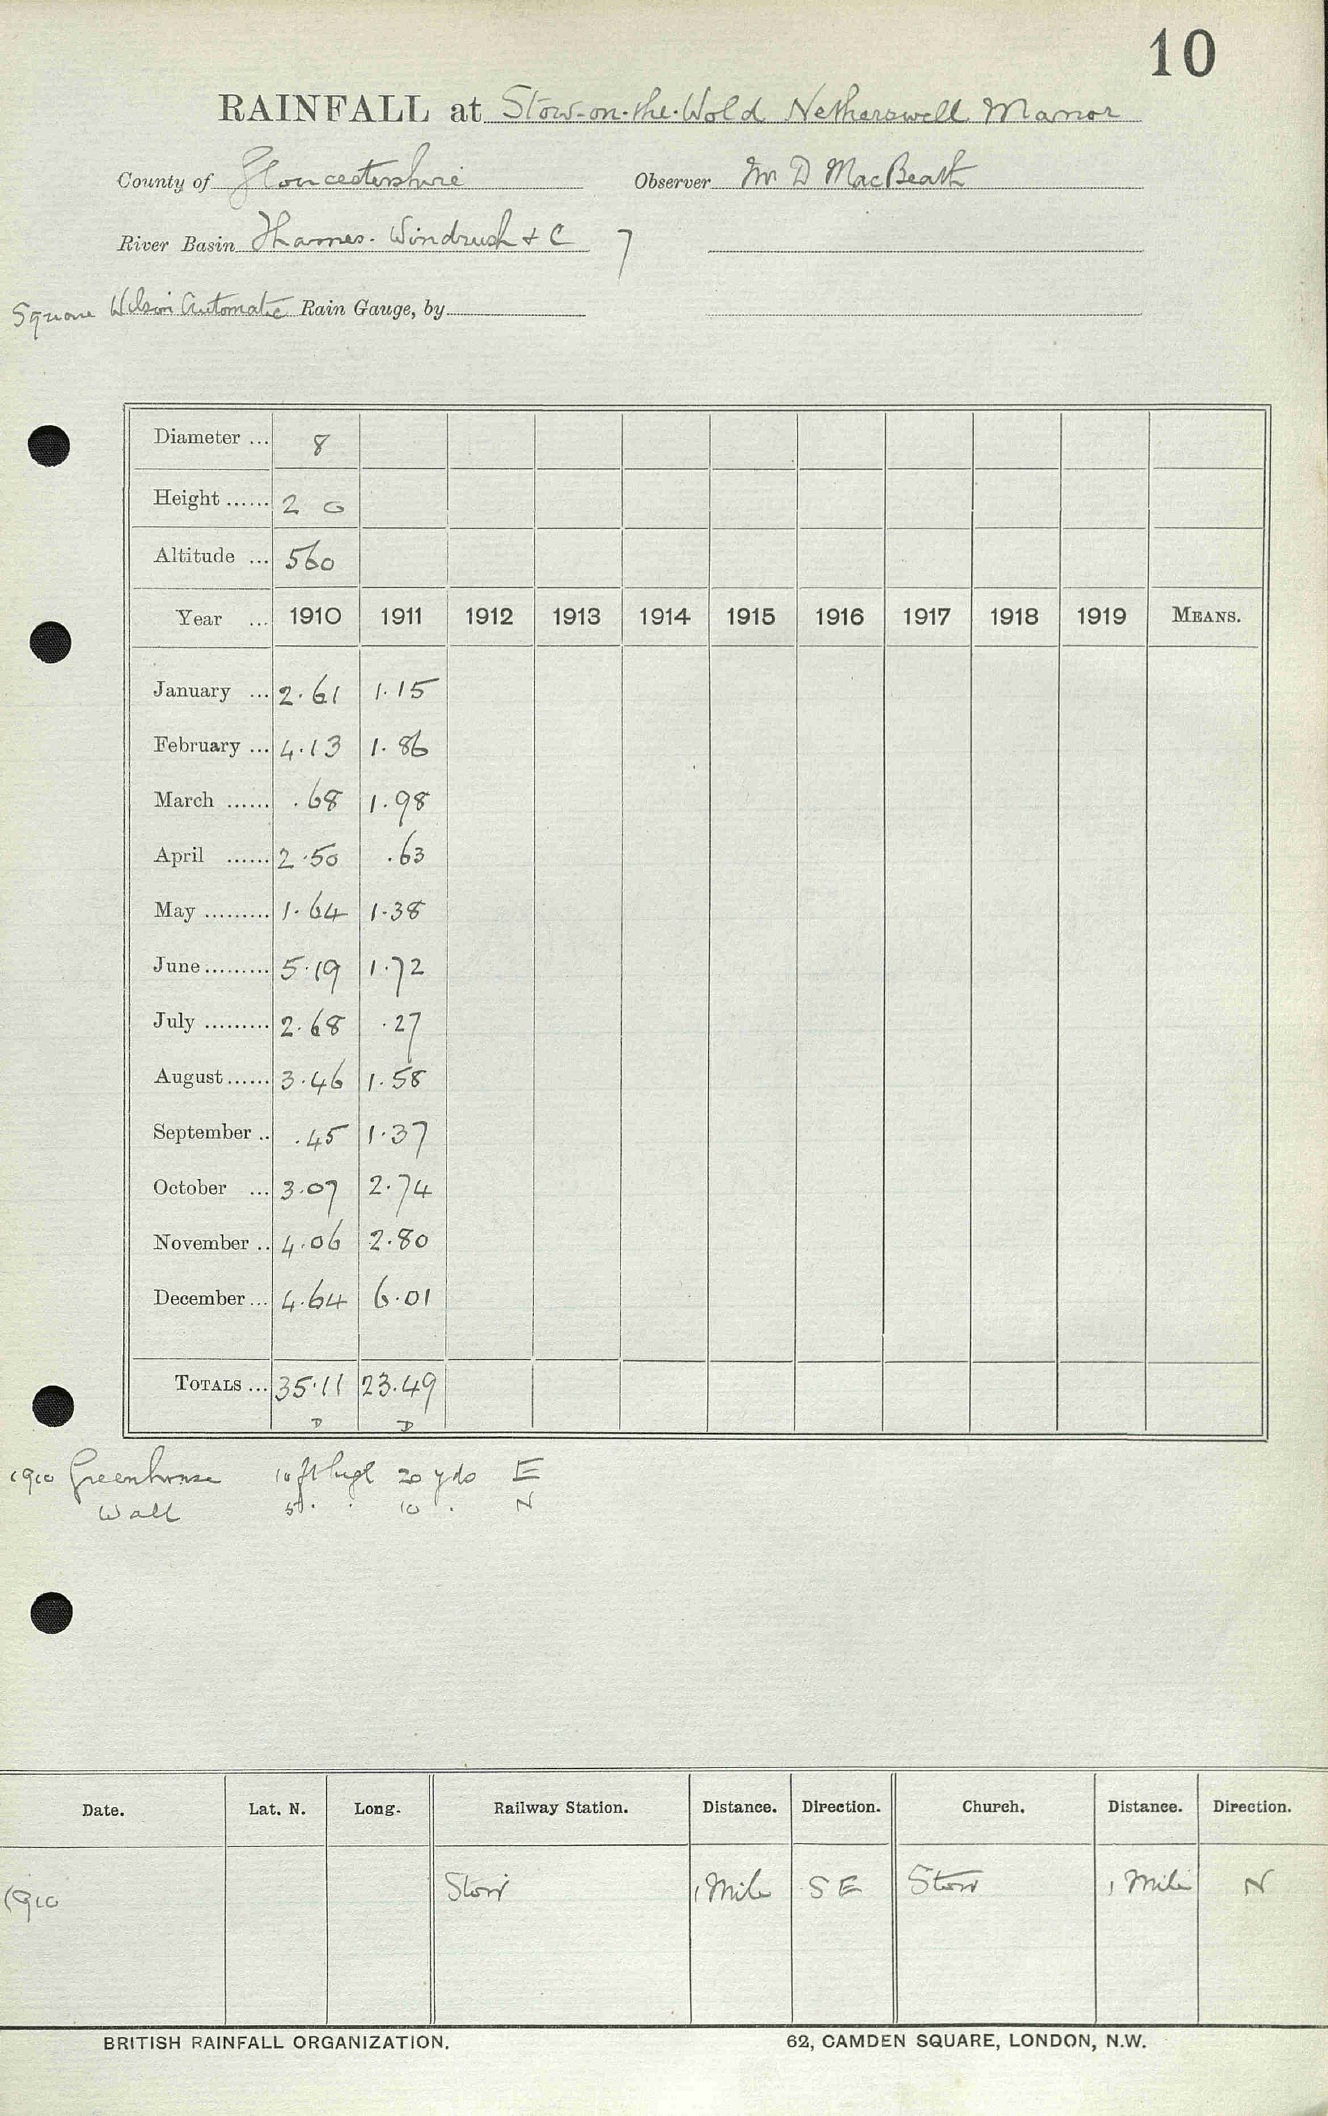 10
RAINFALL at Stow-on-the-Wold Netherswell Manor
County of Gloucestershire Observer Mr D MacBeath
River Basin Thames. Windrush & C 7
Square Wilson Automatic Rain Gauge, by
Diameter ... 8
Height ...... 2 0
Altitude ... 560
Year ... 1910 1911 1912 1913 1914 1915 1916 1917 1918 1919 MEANS.
January ... 2.61 1.15
February ... 4.13 1.86
March ...... .68 1.98
April ...... 2.50 .63
May ......... 1.64 1.38
June ......... 5.19 1.72
July ......... 2.68 .27
August ...... 3.46 1.58
September .. .45 1.37
October ... 3.07 2.74
November .. 4.06 2.80
December ... 4.64 6.01
TOTALS ... 35.11 23.49
D D
1910 Greenhouse 10 ft high 20 yds E
Wall 10 . N
Date. Lat. N. Long. Railway Station. Distance. Direction. Church. Distance. Direction.
1910 Stow 1 Mile S E Stow 1 Mile N
BRITISH RAINFALL ORGANIZATION. 62, CAMDEN SQUARE, LONDON, N.W.